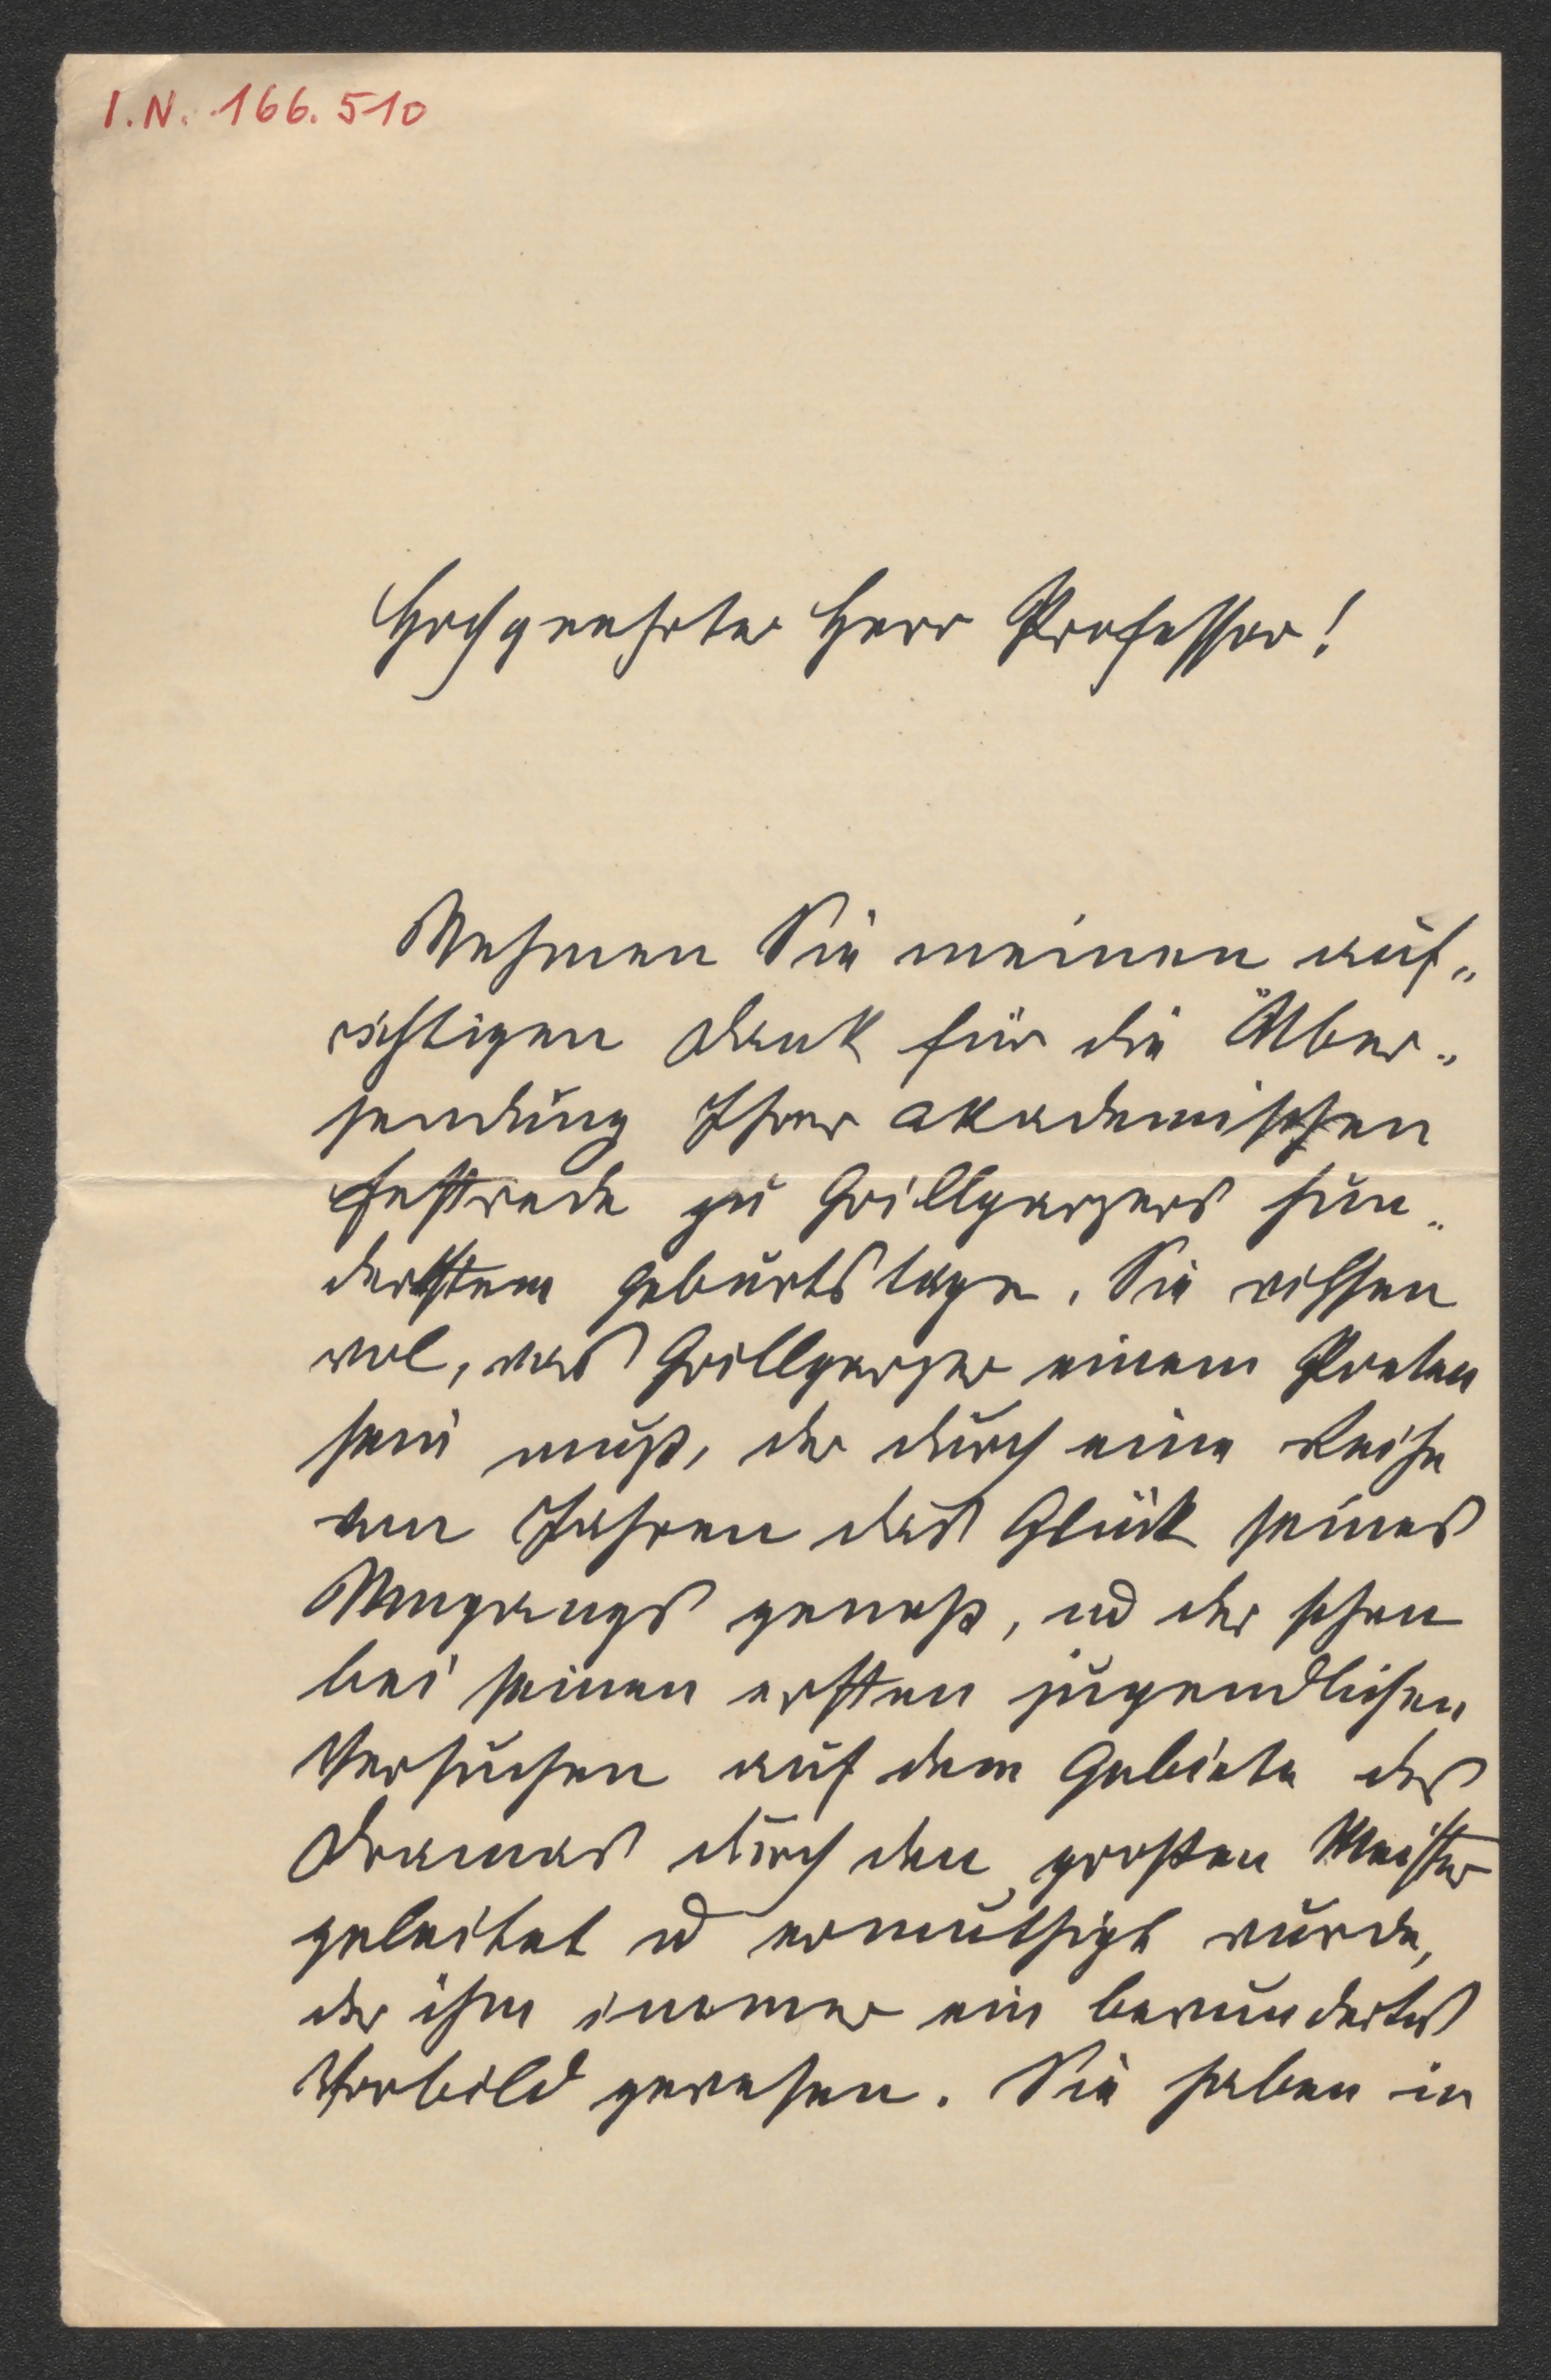 I.N. 166.510
Hochgeehrter Herr Professor!
Nehmen Sie meinen auf„
richtigen Dank für die Über„
sendung Ihrer akademischen
Festrede zu Grillparzers hun„
dertstem Geburtstage. Sie wissen
wol, was Grillparzer einem Poeten
sein muß, der durch eine Reihe
von Jahren das Glück seines
Umgangs genoß, und der schon
bei seinen ersten jugendlichen
Versuchen auf dem Gebiete des
Dramas durch den großen Meister
geleitet und ermuthigt wurde,
der ihm immer ein bewundertes
Vorbild gewesen. Sie haben in